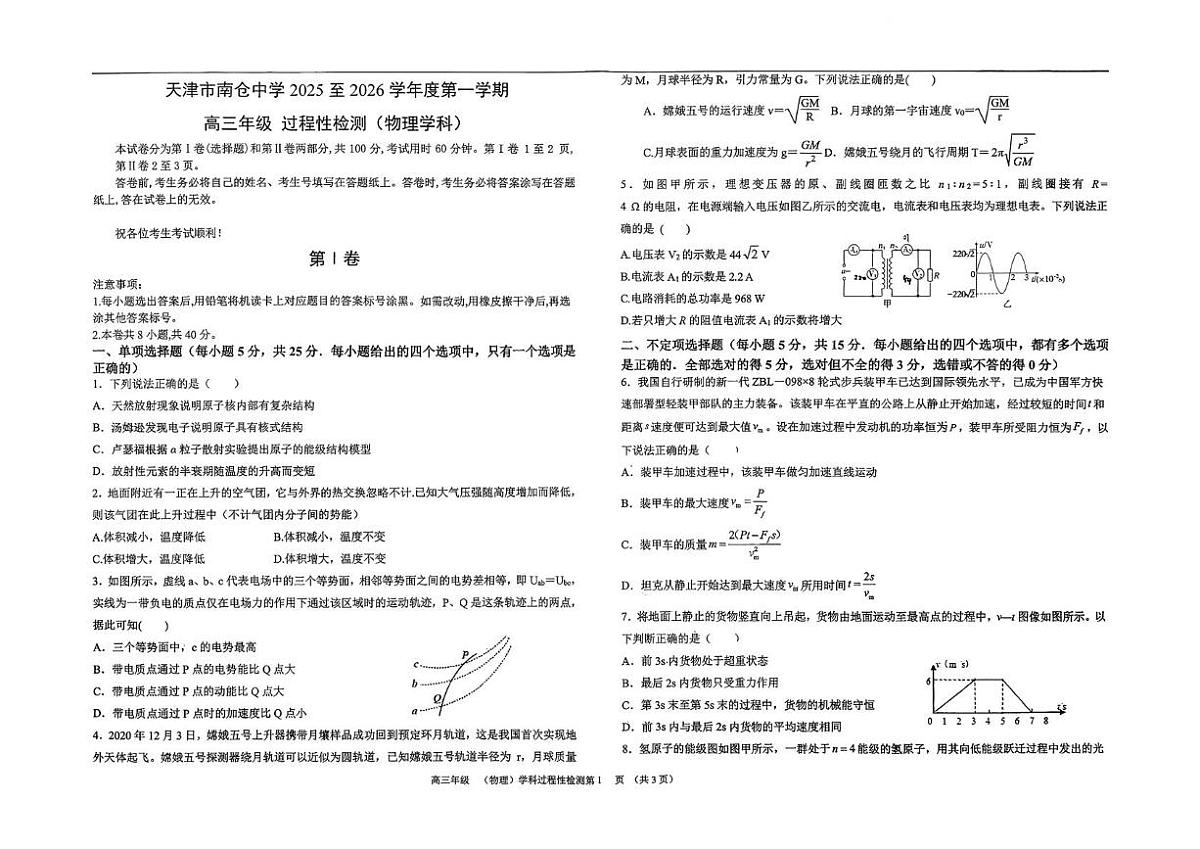 天津市南仓中学 2025 至 2026 学年度第一学期
高三年级 过程性检测（物理学科）
本试卷分为第 I 卷(选择题)和第 II 卷两部分,共 100 分,考试用时 60 分钟。第 I 卷 1 至 2 页,
第 II 卷 2 至 3 页。
答卷前,考生务必将自己的姓名、考生号填写在答题纸上。答卷时,考生务必将答案涂写在答题
纸上,答在试卷上的无效。
祝各位考生考试顺利!
第 I 卷
注意事项:
1.每小题选出答案后,用铅笔将机读卡上对应题目的答案标号涂黑。如需改动,用橡皮擦干净后,再选
涂其他答案标号。
2.本卷共 8 小题,共 40 分。
一、单项选择题（每小题 5 分，共 25 分．每小题给出的四个选项中，只有一个选项是
正确的）
1．下列说法正确的是（　　）
A．天然放射现象说明原子核内部有复杂结构
B．汤姆逊发现电子说明原子具有核式结构
C．卢瑟福根据 α 粒子散射实验提出原子的能级结构模型
D．放射性元素的半衰期随温度的升高而变短
2．地面附近有一正在上升的空气团，它与外界的热交换忽略不计.已知大气压强随高度增加而降低，
则该气团在此上升过程中（不计气团内分子间的势能）
A.体积减小，温度降低　　B.体积减小，温度不变
C.体积增大，温度降低　　D.体积增大，温度不变
3．如图所示，虚线 a、b、c 代表电场中的三个等势面，相邻等势面之间的电势差相等，即 Uab＝Ubc，
实线为一带负电的质点仅在电场力的作用下通过该区域时的运动轨迹，P、Q 是这条轨迹上的两点，
据此可知(　　)
A．三个等势面中，c 的电势最高
B．带电质点通过 P 点的电势能比 Q 点大
C．带电质点通过 P 点的动能比 Q 点大
D．带电质点通过 P 点时的加速度比 Q 点小
c
b
a
P
Q
4．2020 年 12 月 3 日，嫦娥五号上升器携带月壤样品成功回到预定环月轨道，这是我国首次实现地
外天体起飞。嫦娥五号探测器绕月轨道可以近似为圆轨道，已知嫦娥五号轨道半径为 r，月球质量
为 M，月球半径为 R，引力常量为 G。下列说法正确的是(　　)
A．嫦娥五号的运行速度 v＝√(GM/R)　B．月球的第一宇宙速度 v₀＝√(GM/r)
C.月球表面的重力加速度为 g＝GM/r²　D．嫦娥五号绕月的飞行周期 T＝2π√(r³/GM)
5．如图甲所示，理想变压器的原、副线圈匝数之比 n₁∶n₂＝5∶1，副线圈接有 R＝
4 Ω 的电阻，在电源端输入电压如图乙所示的交流电，电流表和电压表均为理想电表。下列说法正
确的是（　　）
A.电压表 V₂ 的示数是 44√2 V
B.电流表 A₁ 的示数是 2.2 A
C.电路消耗的总功率是 968 W
D.若只增大 R 的阻值电流表 A₁ 的示数将增大
A₁ n₁ n₂ A₂
u~ V₁ V₂ R
甲
u/V
220√2
0 1 2 3 t/(×10⁻²s)
−220√2
乙
二、不定项选择题（每小题 5 分，共 15 分．每小题给出的四个选项中，都有多个选项
是正确的．全部选对的得 5 分，选对但不全的得 3 分，选错或不答的得 0 分）
6．我国自行研制的新一代 ZBL—098×8 轮式步兵装甲车已达到国际领先水平，已成为中国军方快
速部署型轻装甲部队的主力装备。该装甲车在平直的公路上从静止开始加速，经过较短的时间 t 和
距离 s 速度便可达到最大值 vₘ。设在加速过程中发动机的功率恒为 P，装甲车所受阻力恒为 F_f，以
下说法正确的是（　　）
A．装甲车加速过程中，该装甲车做匀加速直线运动
B．装甲车的最大速度 vₘ＝P/F_f
C．装甲车的质量 m＝2(Pt−F_f s)/vₘ²
D．坦克从静止开始达到最大速度 vₘ 所用时间 t＝2s/vₘ
7．将地面上静止的货物竖直向上吊起，货物由地面运动至最高点的过程中，v—t 图像如图所示。以
下判断正确的是（　　）
A．前 3s 内货物处于超重状态
B．最后 2s 内货物只受重力作用
C．第 3s 末至第 5s 末的过程中，货物的机械能守恒
D．前 3s 内与最后 2s 内货物的平均速度相同
v (m/s)
6
0 1 2 3 4 5 6 7 8 t/s
8．氢原子的能级图如图甲所示，一群处于 n＝4 能级的氢原子，用其向低能级跃迁过程中发出的光
高三年级 （物理）学科过程性检测第 1 页 （共 3 页）